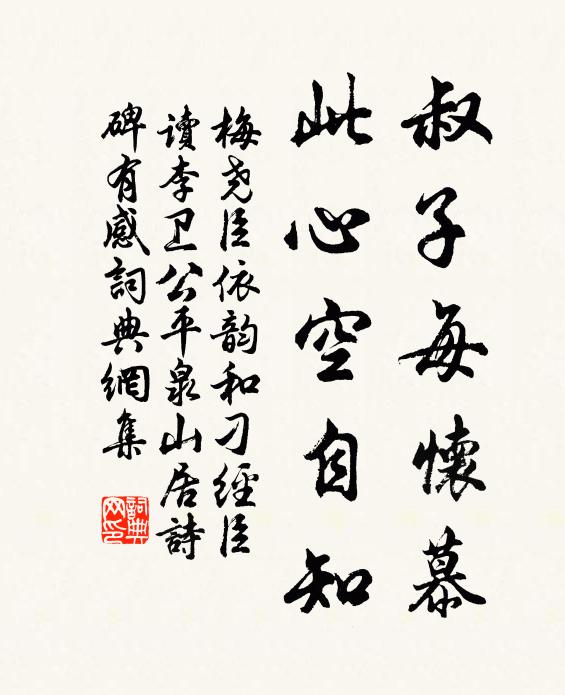 叔子每懷慕
此心空自知
梅尧臣依韵和刁經臣
讀李卫公平泉山居詩
碑有感詞典網集
詞典
网印